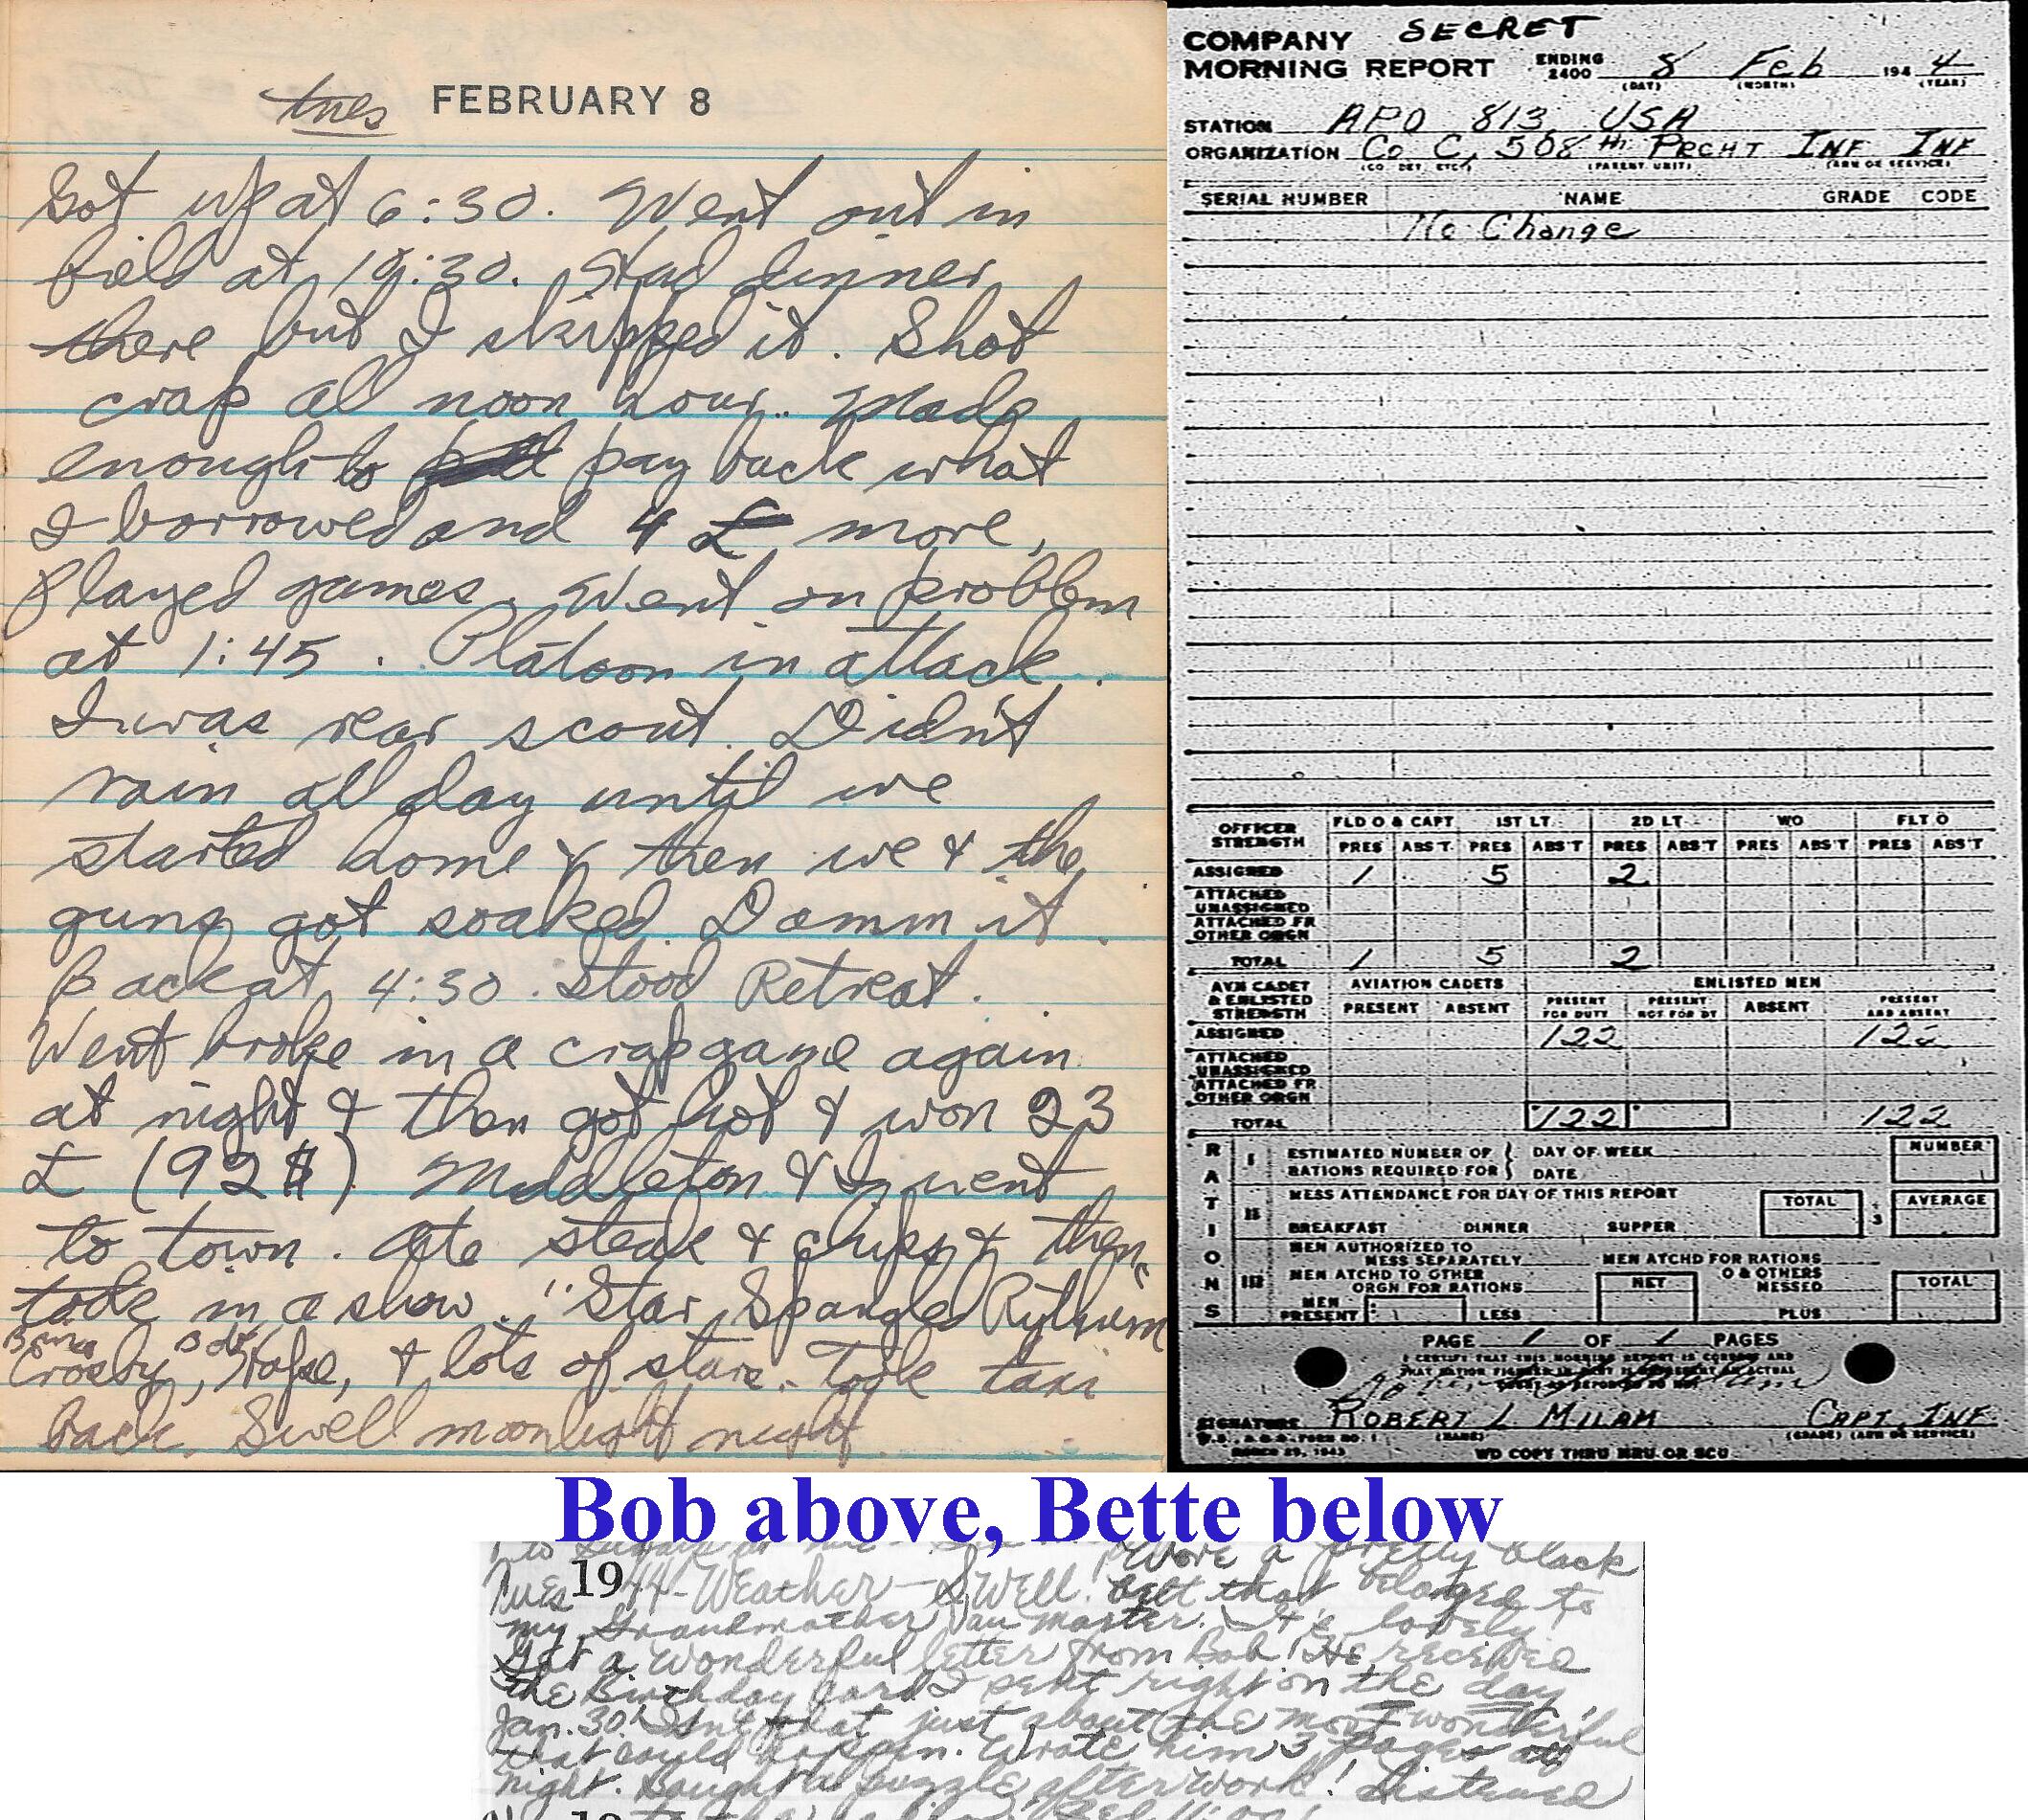 tues FEBRUARY 8
Got up at 6:30. Went out in
field at 10:30. Had dinner
there but I skipped it. Shot
crap all noon hour. Made
enough to pay back what
I borrowed and 4 £ more.
Played games. Went on problem
at 1:45. Platoon in attack.
I was rear scout. Didn't
rain all day until we
started home & then we & the
guns got soaked. Damm it.
Back at 4:30. Stood Retreat.
Went broke in a crap game again
at night & then got hot & won 23
£ (92$) Middleton & I went
to town. Ate steak & chips & then
took in a show. "Star Spangled Rythum
Bing Crosby, Bob Hope, & lots of stars. Took taxi
back. Swell moonlight night.
SECRET
COMPANY
MORNING REPORT ENDING 2400 8 Feb 1944
(DAY) (MONTH) (YEAR)
STATION APO 813 USA
ORGANIZATION Co C, 508th Prcht Inf Inf
(CO DET ETC) (PARENT UNIT) (ARM OR SERVICE)
SERIAL NUMBER NAME GRADE CODE
No Change
OFFICER STRENGTH FLD O & CAPT 1ST LT 2D LT WO FLT O
PRES ABS'T PRES ABS'T PRES ABS'T PRES ABS'T PRES ABS'T
ASSIGNED 1 5 2
ATTACHED UNASSIGNED
ATTACHED FR OTHER ORGN
TOTAL 1 5 2
AVN CADET & ENLISTED STRENGTH AVIATION CADETS ENLISTED MEN
PRESENT ABSENT PRESENT FOR DUTY PRESENT NOT FOR DY ABSENT PRESENT AND ABSENT
ASSIGNED 122 122
ATTACHED UNASSIGNED
ATTACHED FR OTHER ORGN
TOTAL 122 122
RATIONS
I ESTIMATED NUMBER OF RATIONS REQUIRED FOR DAY OF WEEK DATE NUMBER
II MESS ATTENDANCE FOR DAY OF THIS REPORT TOTAL AVERAGE
BREAKFAST DINNER SUPPER 3
III MEN AUTHORIZED TO MESS SEPARATELY MEN ATCHD FOR RATIONS
MEN ATCHD TO OTHER ORGN FOR RATIONS NET O & OTHERS MESSED TOTAL
MEN PRESENT LESS PLUS
PAGE 1 OF 1 PAGES
I CERTIFY THAT THIS MORNING REPORT IS CORRECT AND
SIGNATURE ROBERT L MILAM CAPT. INF.
(NAME) (GRADE) (ARM OR SERVICE)
MARCH 25, 1943 WD COPY THRU MRU OR SCU
Bob above, Bette below
Wore a pretty black
Tues 1944 - Weather - Swell! that belonged to
my Grandmother Van Marter. It's lovely!
Got a wonderful letter from Bob! He received
the Birthday Card I sent right on the day
Jan. 30! Isn't that just about the most wonderful
that could happen. Wrote him 3 pages
night. Bought a puzzle after work! Listened